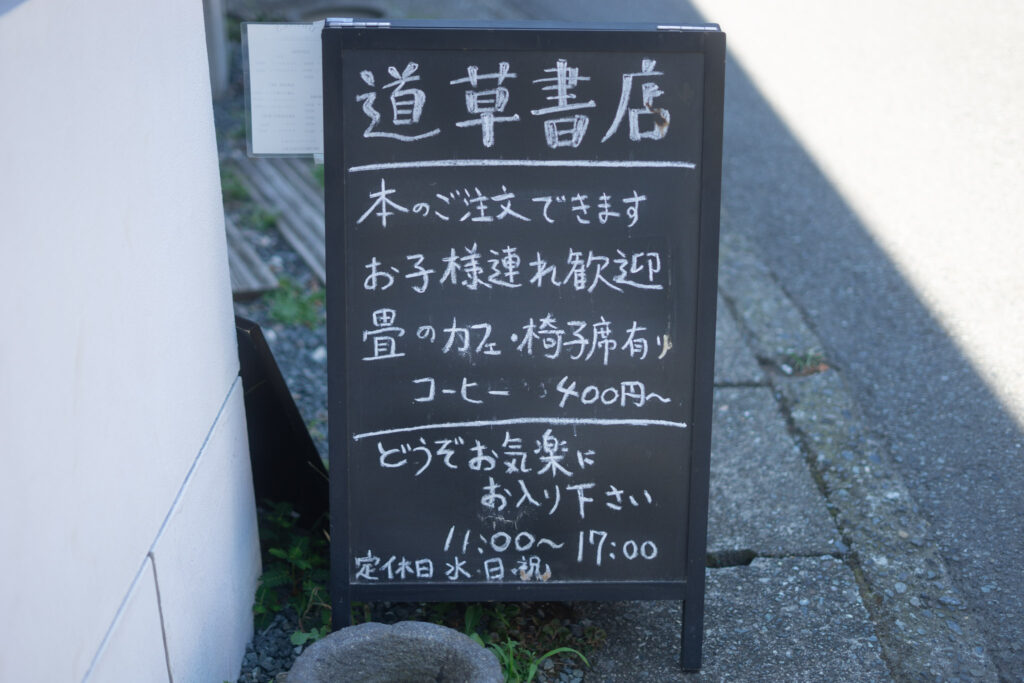 道草書店
本のご注文できます
お子様連れ歓迎
畳のカフェ・椅子席有り
コーヒー 400円～
どうぞお気楽に
お入り下さい
11:00～17:00
定休日 水・日・祝